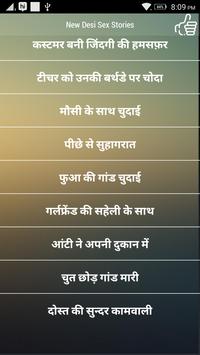 8:09 PM
New Desi Sex Stories
कस्टमर बनी जिंदगी की हमसफ़र
टीचर को उनकी बर्थडे पर चोदा
मौसी के साथ चुदाई
पीछे से सुहागरात
फुआ की गांड चुदाई
गर्लफ्रेंड की सहेली के साथ
आंटी ने अपनी दुकान में
चुत छोड़ गांड मारी
दोस्त की सुन्दर कामवाली